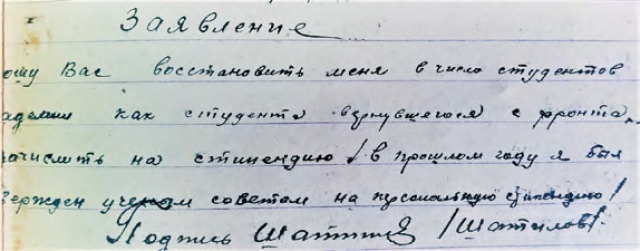 Заявление
ошу Вас восстановить меня в число студентов
адемии как студента вернувшегося с фронта
зачислить на стипендию /в прошлом году я был
вержден ученым советом на персональную стипендию/
Подпись Шатилов /Шатилов/.